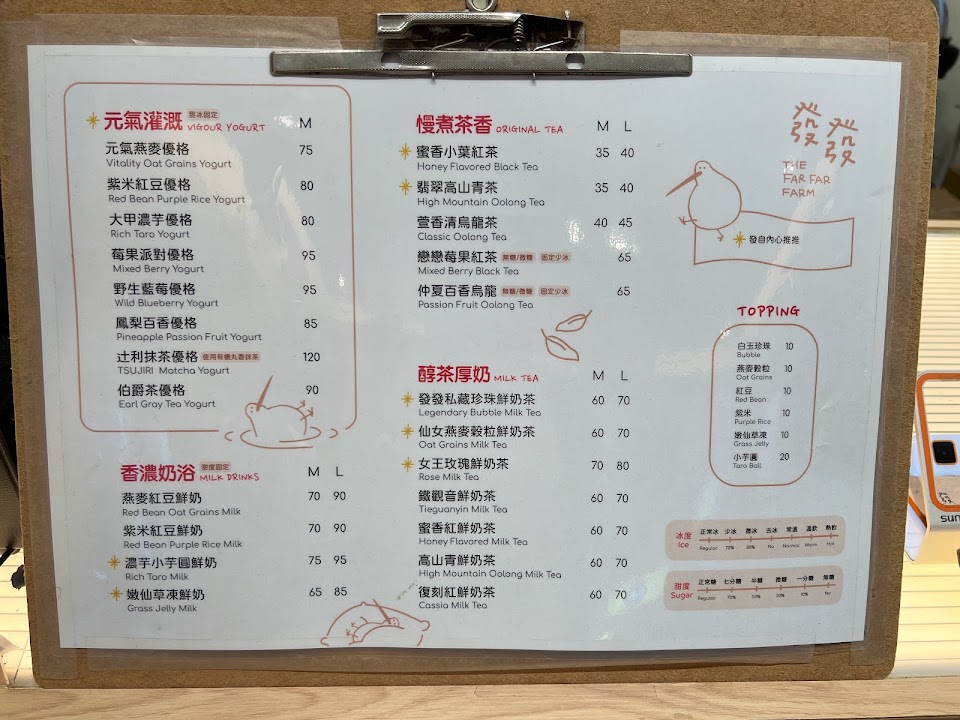 元氣灌溉 甜冰固定
VIGOUR YOGURT M
元氣燕麥優格 75
Vitality Oat Grains Yogurt
紫米紅豆優格 80
Red Bean Purple Rice Yogurt
大甲濃芋優格 80
Rich Taro Yogurt
莓果派對優格 95
Mixed Berry Yogurt
野生藍莓優格 95
Wild Blueberry Yogurt
鳳梨百香優格 85
Pineapple Passion Fruit Yogurt
辻利抹茶優格 使用有機丸香抹茶 120
TSUJIRI Matcha Yogurt
伯爵茶優格 90
Earl Gray Tea Yogurt
香濃奶浴 甜度固定
MILK DRINKS M L
燕麥紅豆鮮奶 70 90
Red Bean Oat Grains Milk
紫米紅豆鮮奶 70 90
Red Bean Purple Rice Milk
濃芋小芋圓鮮奶 75 95
Rich Taro Milk
嫩仙草凍鮮奶 65 85
Grass Jelly Milk
慢煮茶香 ORIGINAL TEA M L
蜜香小葉紅茶 35 40
Honey Flavored Black Tea
翡翠高山青茶 35 40
High Mountain Oolong Tea
萱香清烏龍茶 40 45
Classic Oolong Tea
戀戀莓果紅茶 無糖/微糖 固定少冰 65
Mixed Berry Black Tea
仲夏百香烏龍 無糖/微糖 固定少冰 65
Passion Fruit Oolong Tea
醇茶厚奶 MILK TEA M L
發發私藏珍珠鮮奶茶 60 70
Legendary Bubble Milk Tea
仙女燕麥穀粒鮮奶茶 60 70
Oat Grains Milk Tea
女王玫瑰鮮奶茶 70 80
Rose Milk Tea
鐵觀音鮮奶茶 60 70
Tieguanyin Milk Tea
蜜香紅鮮奶茶 60 70
Honey Flavored Milk Tea
高山青鮮奶茶 60 70
High Mountain Oolong Milk Tea
復刻紅鮮奶茶 60 70
Cassia Milk Tea
發發
THE
FAR FAR
FARM
發自內心推推
TOPPING
白玉珍珠 10
Bubble
燕麥穀粒 10
Oat Grains
紅豆 10
Red Bean
紫米 10
Purple Rice
嫩仙草凍 10
Grass Jelly
小芋圓 20
Taro Ball
冰度 正常冰 少冰 微冰 去冰 常溫 溫飲 熱飲
Ice Regular 70% 30% No Normal Warm Hot
甜度 正常糖 七分糖 半糖 微糖 一分糖 無糖
Sugar Regular 70% 50% 30% 10% No
發發
sun